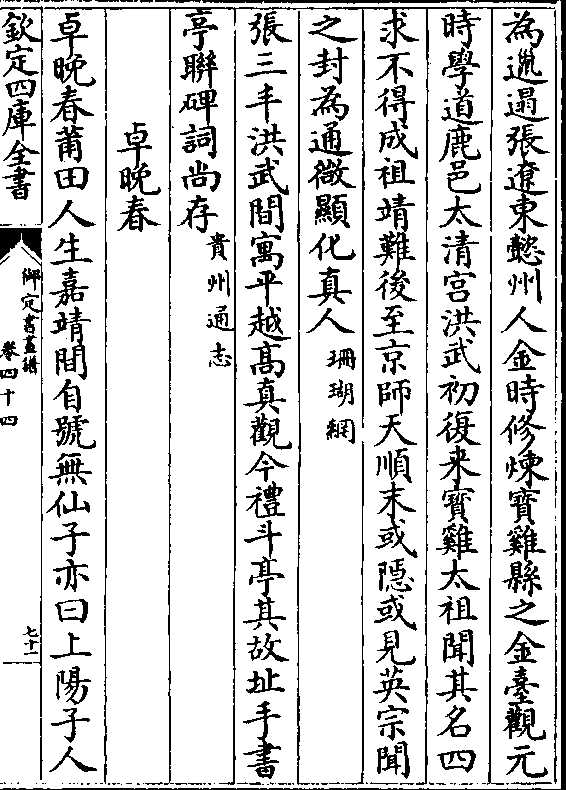 為邋遢張遼東懿州人金時修煉寶雞縣之金臺觀元
時學道鹿邑太清宮洪武初復来寶雞太祖聞其名四
求不得成祖靖難後至京師天順末或隱或見英宗聞
之封為通微顯化真人珊瑚網
張三丰洪武間寓平越高真觀今禮斗亭其故址手書
亭聯碑詞尚存貴州通志
卓晚春
卓晚春莆田人生嘉靖間自號無仙子亦曰上陽子人
欽定四庫全書
御定書畫譜
卷四十四
七十一